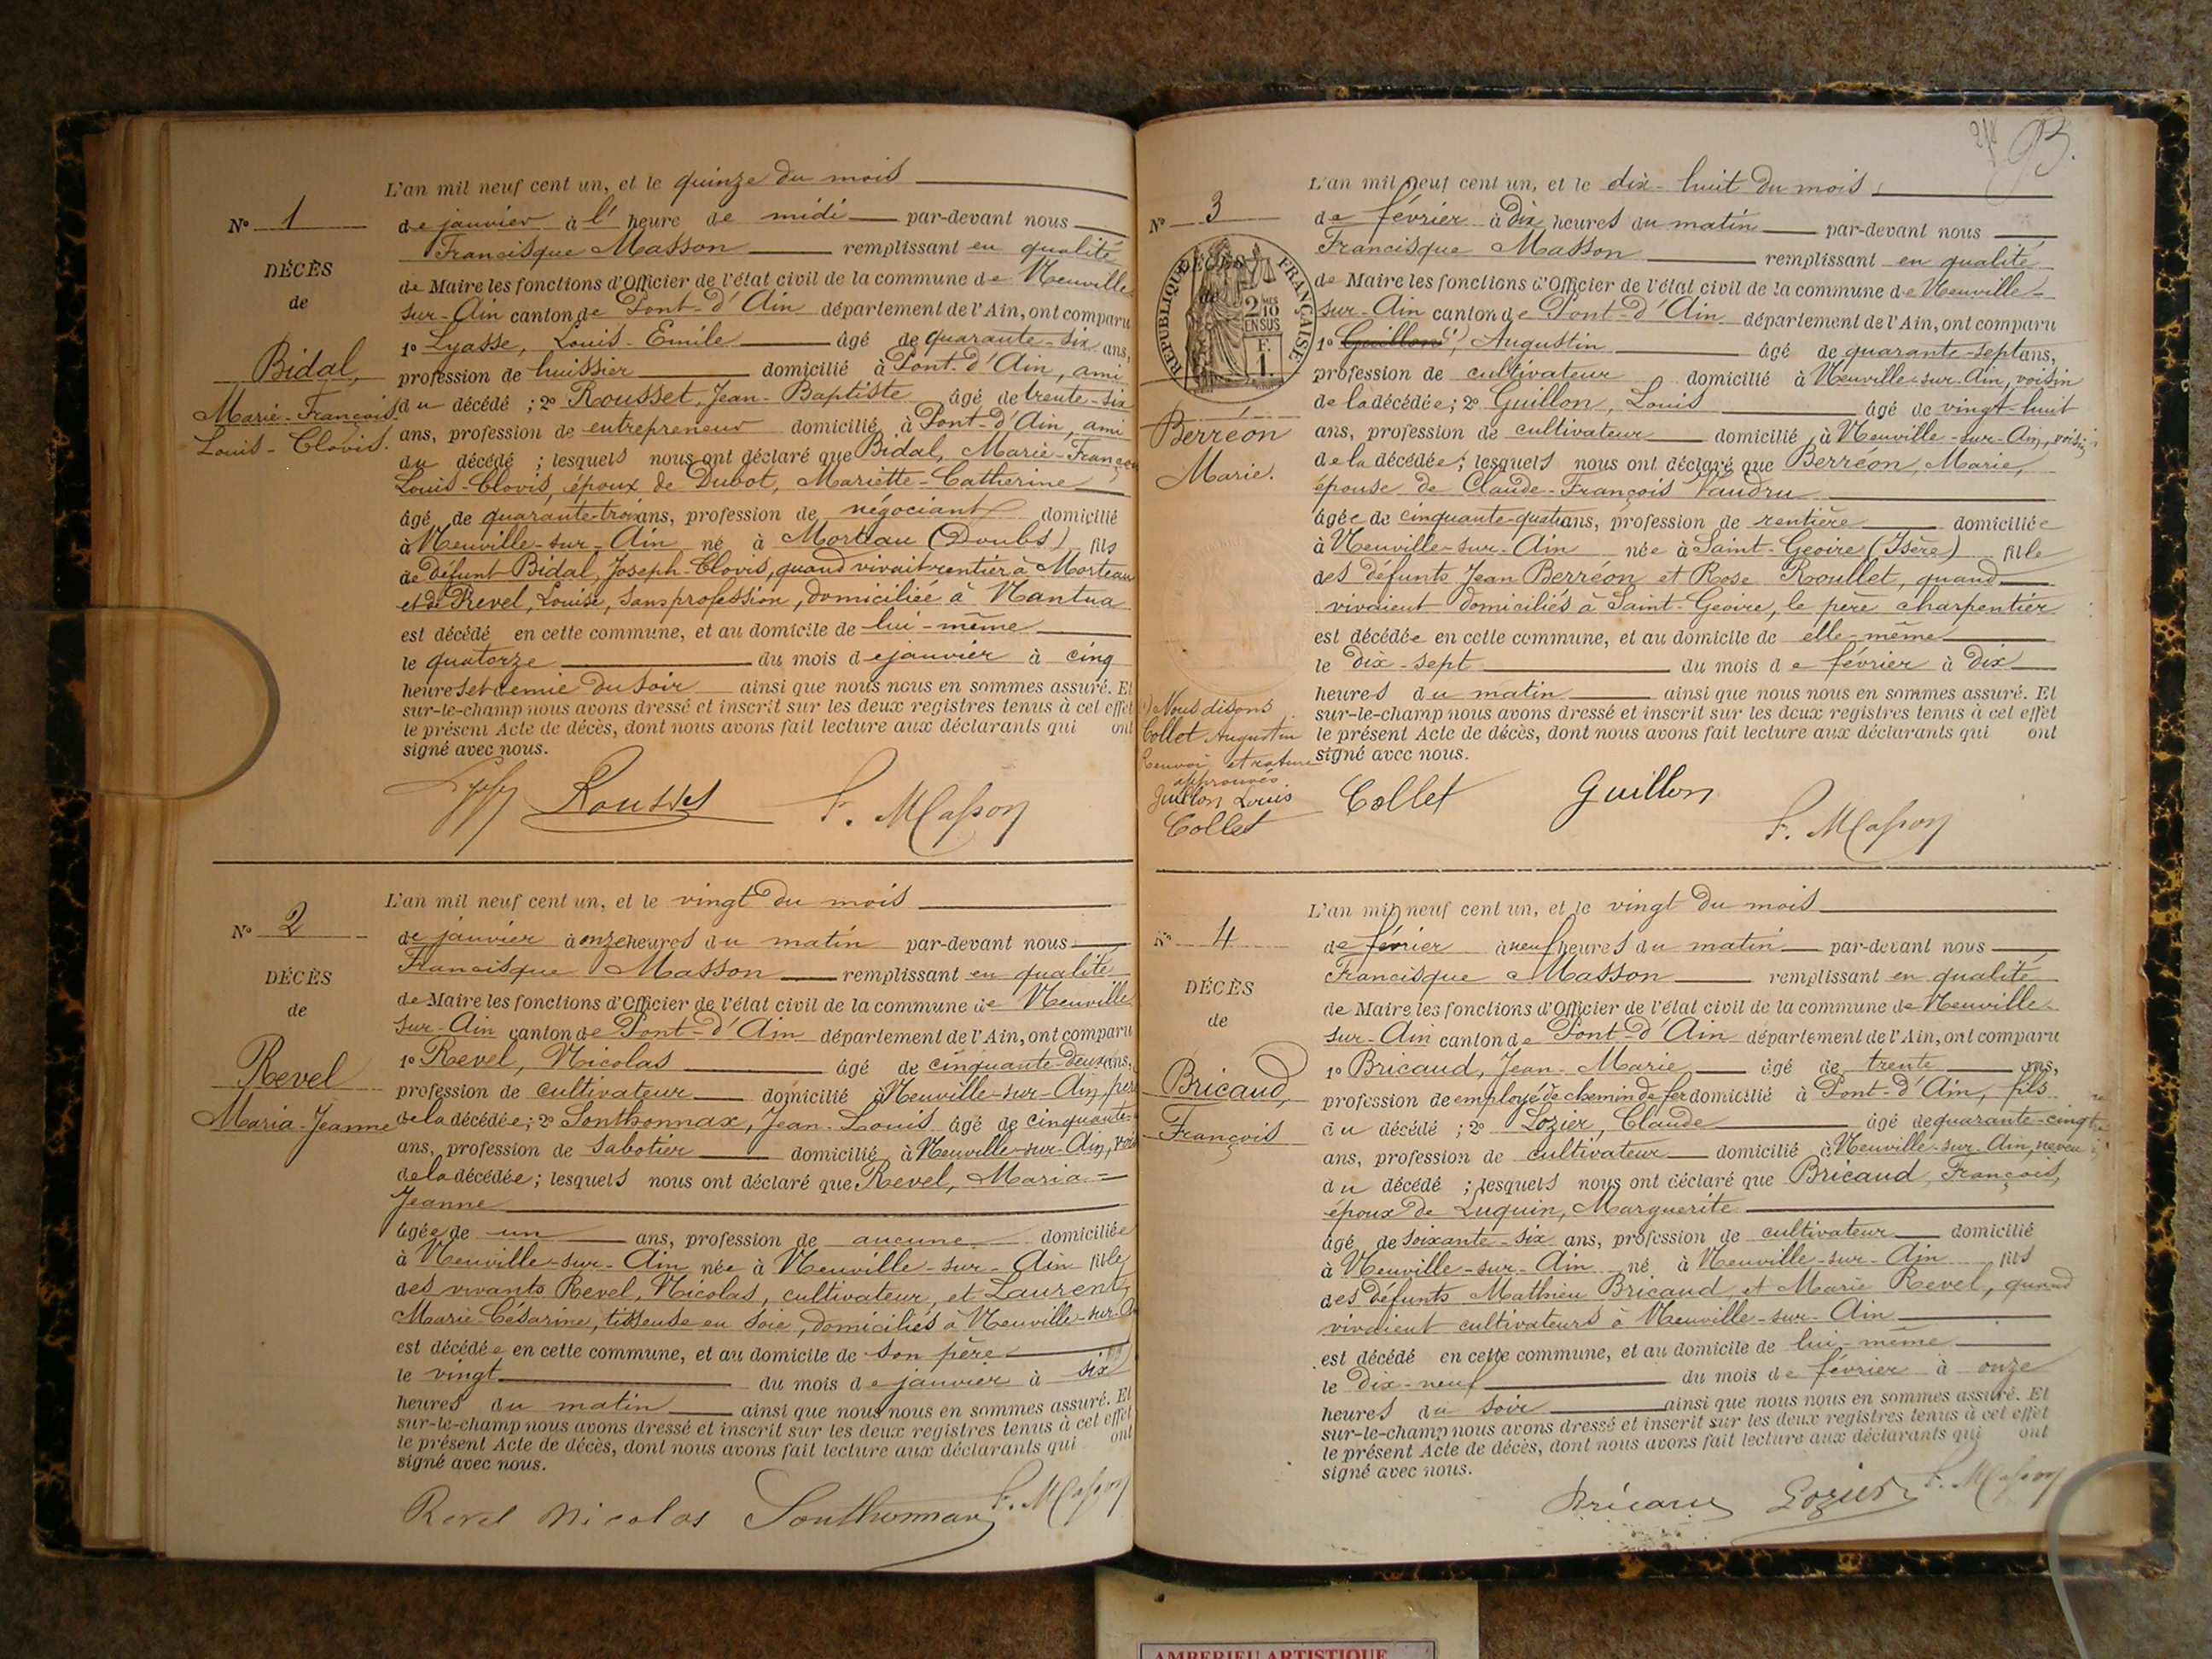 L'an mil neuf cent un, et le quinze du mois
N° 1
de janvier à l' heure de midi par-devant nous
Francisque Masson remplissant en qualité
DÉCÈS
de Maire les fonctions d'Officier de l'état civil de la commune de Neuville
de
sur-Ain canton de Pont-d'Ain département de l'Ain, ont comparu
1° Lyasse, Louis-Emile âgé de quarante-six ans,
Bidal,
profession de huissier domicilié à Pont-d'Ain, ami
Marie-François
du décédé ; 2° Rousset, Jean-Baptiste âgé de trente-six
Louis-Clovis.
ans, profession de entrepreneur domicilié à Pont-d'Ain, ami
du décédé ; lesquels nous ont déclaré que Bidal, Marie-François
Louis-Clovis, époux de Dubot, Mariette-Catherine
âgé de quarante-trois ans, profession de négociant domicilié
à Neuville-sur-Ain né à Morteau (Doubs) fils
de défunt Bidal, Joseph-Clovis, quand vivait rentier à Morteau
et de Revel, Louise, sans profession, domiciliée à Nantua
est décédé en cette commune, et au domicile de lui-même
le quatorze du mois de janvier à cinq
heures et demie du soir ainsi que nous nous en sommes assuré. Et
sur-le-champ nous avons dressé et inscrit sur les deux registres tenus à cet effet
le présent Acte de décès, dont nous avons fait lecture aux déclarants qui ont
signé avec nous.
Rousset F. Masson
L'an mil neuf cent un, et le vingt du mois
N° 2
de janvier à onze heures du matin par-devant nous
Francisque Masson remplissant en qualité
DÉCÈS
de Maire les fonctions d'Officier de l'état civil de la commune de Neuville
de
sur-Ain canton de Pont-d'Ain département de l'Ain, ont comparu
1° Revel, Nicolas âgé de cinquante-deux ans,
Revel
profession de cultivateur domicilié à Neuville-sur-Ain, père
Maria-Jeanne
de la décédée; 2° Sonthonnax, Jean-Louis âgé de cinquante-
ans, profession de sabotier domicilié à Neuville-sur-Ain, voisin
de la décédée; lesquels nous ont déclaré que Revel, Maria-
Jeanne
âgée de un ans, profession de aucune domiciliée
à Neuville-sur-Ain née à Neuville-sur-Ain fille
des vivants Revel, Nicolas, cultivateur, et Laurent,
Marie-Césarine, tisseuse en soie, domiciliés à Neuville-sur-Ain
est décédée en cette commune, et au domicile de son père
le vingt du mois de janvier à six
heures du matin ainsi que nous nous en sommes assuré. Et
sur-le-champ nous avons dressé et inscrit sur les deux registres tenus à cet effet
le présent Acte de décès, dont nous avons fait lecture aux déclarants qui ont
signé avec nous.
Revel Nicolas Sonthonnax F. Masson
93.
L'an mil neuf cent un, et le dix-huit du mois
N° 3
de février à dix heures du matin par-devant nous
Francisque Masson remplissant en qualité
DÉCÈS
de Maire les fonctions d'Officier de l'état civil de la commune de Neuville-
de
RÉPUBLIQUE FRANÇAISE
2/10 EN SUS
F. 1.
sur-Ain canton de Pont-d'Ain département de l'Ain, ont comparu
1° Guillon (1) Augustin âgé de quarante-sept ans,
profession de cultivateur domicilié à Neuville-sur-Ain, voisin
de la décédée; 2° Guillon, Louis âgé de vingt-huit
Berréon
ans, profession de cultivateur domicilié à Neuville-sur-Ain, voisin
Marie.
de la décédée; lesquels nous ont déclaré que Berréon, Marie,
épouse de Claude-François Vaudru
âgée de cinquante-quatre ans, profession de rentière domiciliée
à Neuville-sur-Ain née à Saint-Geoire (Isère) fille
des défunts Jean Berréon et Rose Roullet, quand
vivaient domiciliés à Saint-Geoire, le père charpentier
est décédée en cette commune, et au domicile de elle-même
le dix-sept du mois de février à dix
heures du matin ainsi que nous nous en sommes assuré. Et
sur-le-champ nous avons dressé et inscrit sur les deux registres tenus à cet effet
le présent Acte de décès, dont nous avons fait lecture aux déclarants qui ont
signé avec nous.
1) Nous disons
Collet Augustin
renvoi et rature
approuvés
Guillon Louis
Collet
Collet Guillon F. Masson
L'an mil neuf cent un, et le vingt du mois
N° 4
de février à neuf heures du matin par-devant nous
Francisque Masson remplissant en qualité
DÉCÈS
de Maire les fonctions d'Officier de l'état civil de la commune de Neuville-
de
sur-Ain canton de Pont-d'Ain département de l'Ain, ont comparu
1° Bricaud, Jean-Marie âgé de trente ans,
Bricaud,
profession de employé de chemin de fer domicilié à Pont-d'Ain, fils
François
du décédé ; 2° Lozier, Claude âgé de quarante-cinq
ans, profession de cultivateur domicilié à Neuville-sur-Ain, neveu
du décédé ; lesquels nous ont déclaré que Bricaud, François,
époux de Luquin, Marguerite
âgé de soixante-six ans, profession de cultivateur domicilié
à Neuville-sur-Ain né à Neuville-sur-Ain fils
des défunts Mathieu Bricaud et Marie Revel, quand
vivaient cultivateurs à Neuville-sur-Ain
est décédé en cette commune, et au domicile de lui-même
le dix-neuf du mois de février à onze
heures du soir ainsi que nous nous en sommes assuré. Et
sur-le-champ nous avons dressé et inscrit sur les deux registres tenus à cet effet
le présent Acte de décès, dont nous avons fait lecture aux déclarants qui ont
signé avec nous.
Bricaud Lozier F. Masson
AMBERIEU ARTISTIQUE